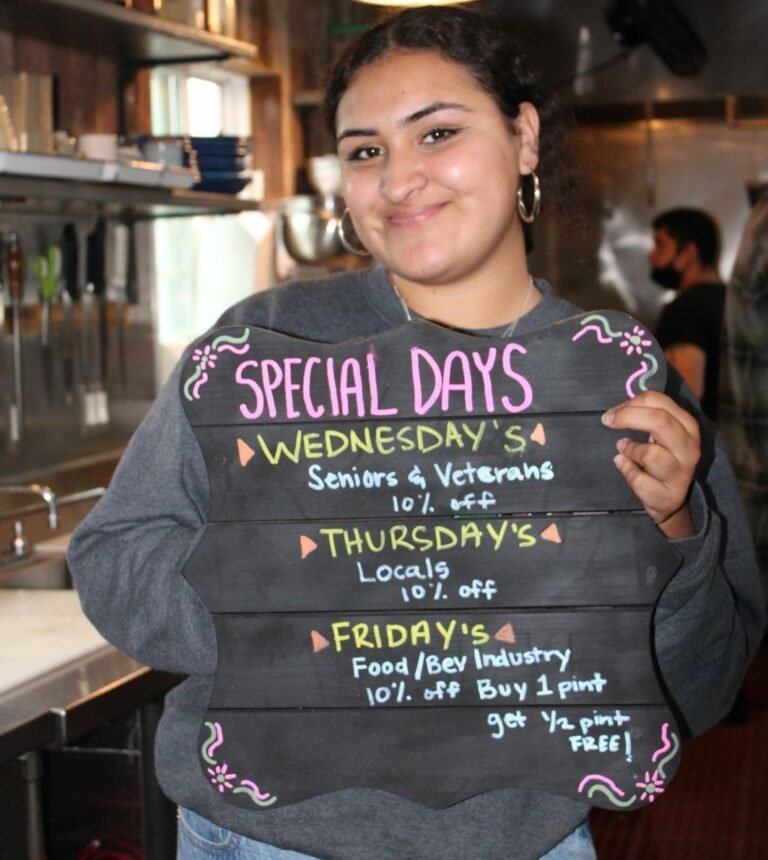 SPECIAL DAYS
WEDNESDAY'S
Seniors & Veterans
10% off
THURSDAY'S
Locals
10% off
FRIDAY'S
Food/Bev Industry
10% off Buy 1 pint
get 1/2 pint
FREE!